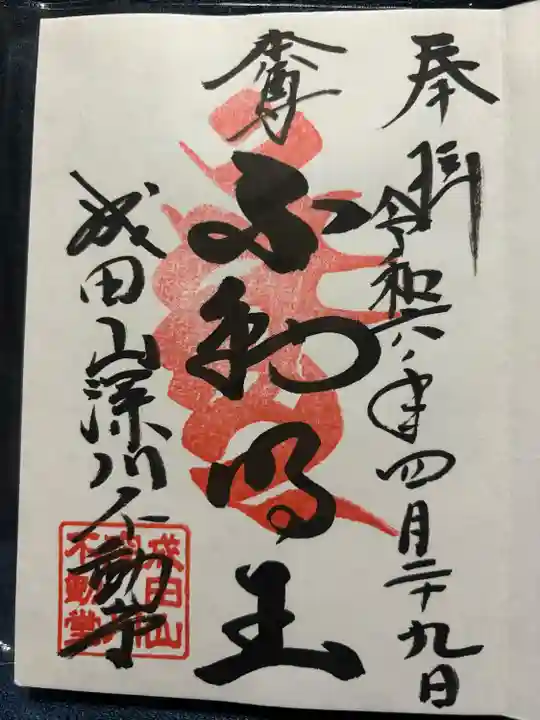 奉拝
令和六年四月二十九日
本尊
不動明王
成田山深川不動尊
成田山
不動堂